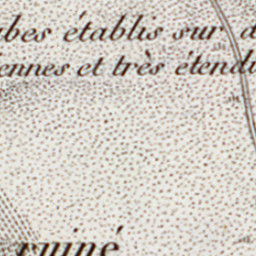 ubes établis sur d
ennes et très étendu
ruiné